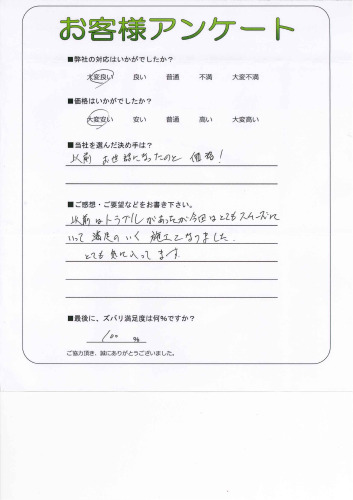 お客様アンケート
■弊社の対応はいかがでしたか？
大変良い 良い 普通 不満 大変不満
■価格はいかがでしたか？
大変安い 安い 普通 高い 大変高い
■当社を選んだ決め手は？
以前 お世話になったのと 価格！
■ご感想・ご要望などをお書き下さい。
以前はトラブルがあったが今回はとてもスムーズに
いって 満足のいく 施工となりました。
とても 気に入ってます。
■最後に、ズバリ満足度は何%ですか？
100 %
ご協力頂き、誠にありがとうございました。